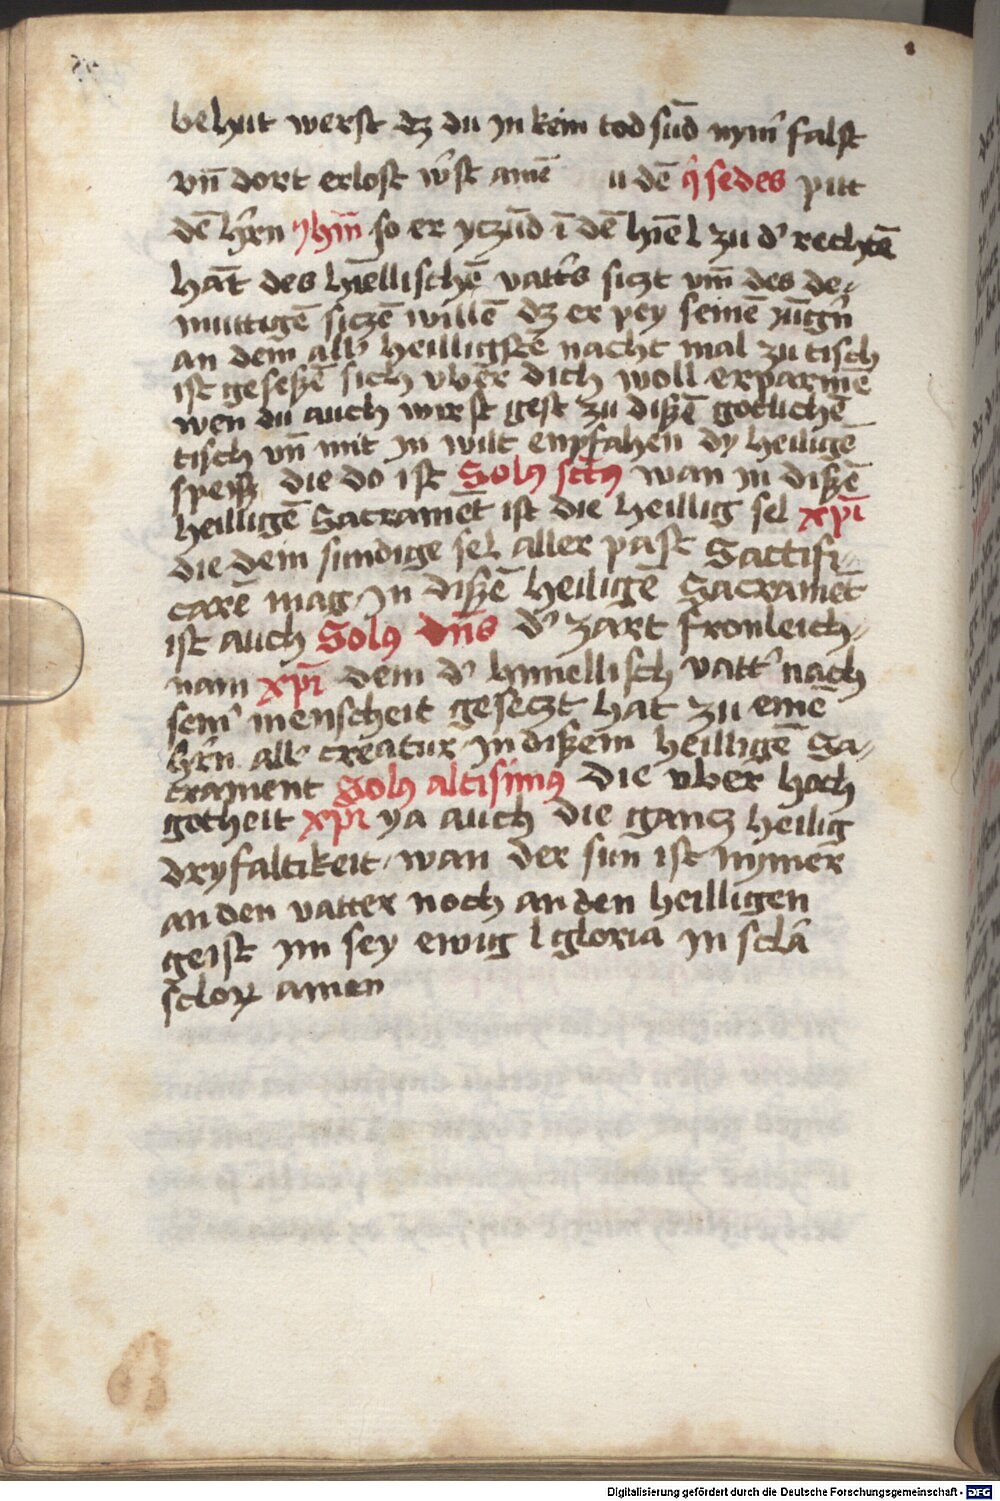 behuit werst dz du in kein tod sūd nym̄ falst
vn̄ dort erlost w̄st amē u dē q̄ sedes pitt
dē h̄rn yhm̄ so er yczūd ī dē hīel zu d' rechtē
hāt des hīellischē vatt̄s siczt vm̄ des de-
muttigē siczē willē dz er pey seinē yūgn̄
an dem all' heilligstē nacht mal zu tisch
ist geseßē sich vber dich woll erparmē
wen du auch wirst gest zu dißē gotlichē
tisch vn̄ mit in wilt enpfahen dy heiligē
speiß die do ist Solus sctus wan in dißē
heilligē Sacramēt ist die heillig sel xpī
die dein sundige sel aller past Sattifi-
carē mag in dißē heiligē Sacramēt
ist auch Solus dn̄s d' zart fronleich-
nam xpī dem d' himellisch vatt' nach
sein' menscheit geseczt hat zu einē
h̄rn all' creatur in dißem heilligē Sa-
crament Solus altisimus die vber hoch
gotheit xpī ya auch die gancz heilig
dryfaltikeit wan der sun ist nymer
an den vatter noch an den heilligen
geist im sey ewig l gloria in sclā
sclorꝝ amen
Digitalisierung gefördert durch die Deutsche Forschungsgemeinschaft - DFG